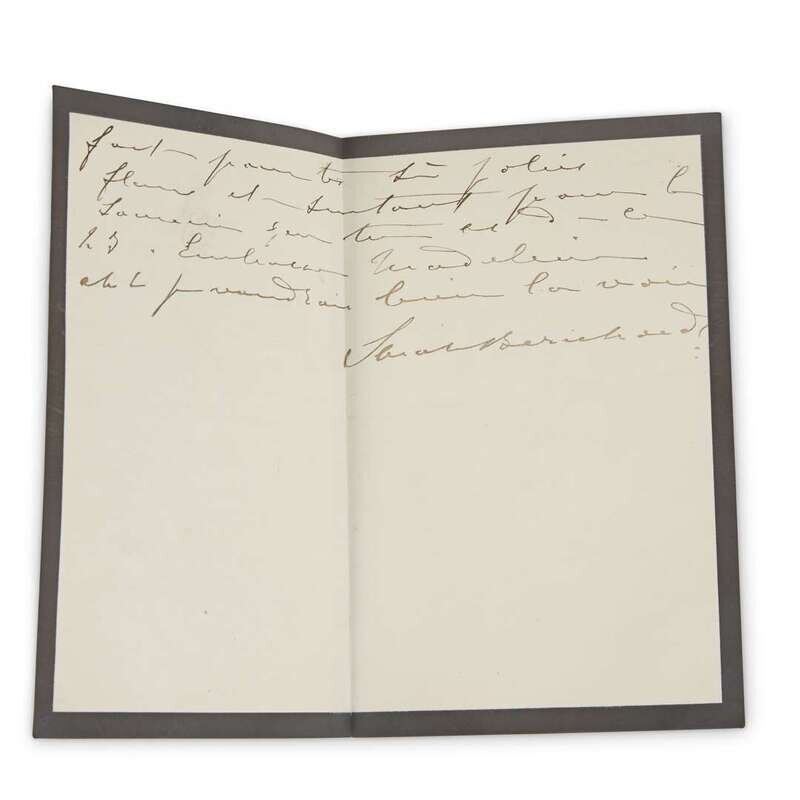 fort pour tes si jolies
fleurs et surtout pour le
souvenir
23. Embrasse Madeleine
ah! je voudrais bien la voir
Sarah Bernhardt